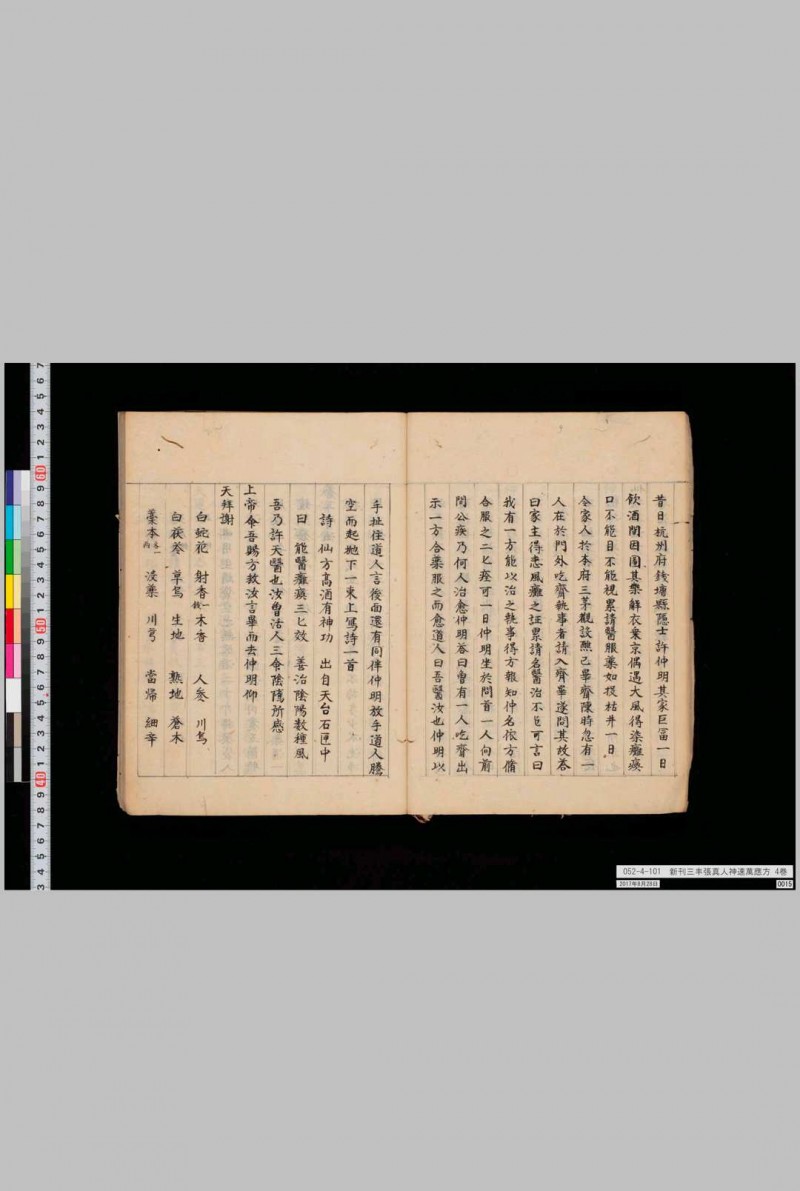 昔日杭州府錢塘縣隱士許仲明其家巨富一日
飲酒間困園其樂解衣乘京偶遇大風得染癱瘓
口不能目不能視累請醫服藥如投枯井一日
令家人於本府三茅觀設醮已畢齊陳時忽有一
人在於門外吃齊執事者請入齊畢遂問其故答
曰家主得患風癱之証累請名醫治不可言曰
我有一方能以治之執事得方報知仲名依方俻
合服之二匕痊可一日仲明坐於間首一人向前
問公瘓乃何人治愈仲明答曰曽有一人吃齊出
示一方合藥服之而愈道人曰吾醫汝也仲明以
手扯住道人言後面還有同伴仲明放手道人騰
空而起拋下一柬上寫詩一首
詩 仙方高酒有神功 出自天台石匣中
曰 能醫癱瘓三匕效 善治陰陽数種風
吾乃許天醫也汝曽活人三命陰隲所感
上帝命吾賜方救汝言畢而去仲明仰
天拜謝
白蛇花 射香一錢 木香 人參 川烏
白茯苓 草烏 生地 熟地 蒼木
藁本各一両 沒藥 川芎 當帰 細辛
052-4-101 新刊三丰張真人神速萬應方 4巻
2017年8月29日
0015